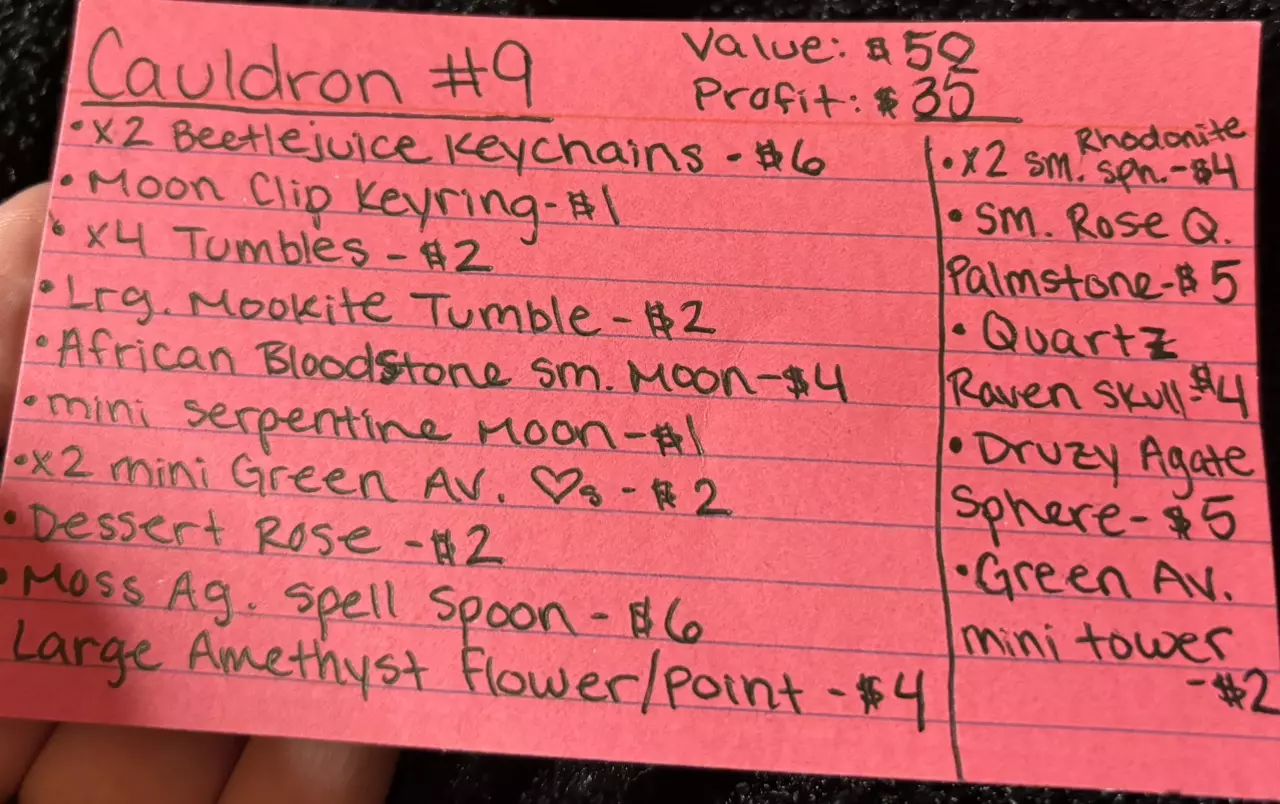 Cauldron #9
Value: $50
Profit: $35
• x2 Beetlejuice Keychains - $6
• Moon Clip Keyring - $1
• x4 Tumbles - $2
• Lrg. Mookite Tumble - $2
• African Bloodstone sm. Moon - $4
• mini serpentine Moon - $1
• x2 mini Green Av. ♡s - $2
• Dessert Rose - $2
• Moss Ag. Spell Spoon - $6
Large Amethyst Flower/Point - $4
Rhodonite
• x2 sm. sph. - $4
• Sm. Rose Q.
Palmstone - $5
• Quartz
Raven Skull - $4
• Druzy Agate
Sphere - $5
• Green Av.
mini tower
- $2